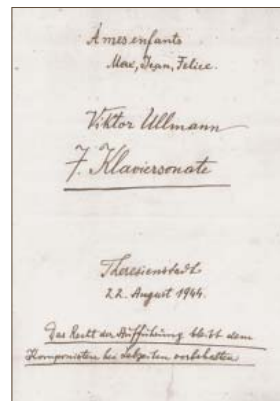 À mes enfants
Max, Jean, Felice.
Viktor Ullmann
7. Klaviersonate
Theresienstadt
22. August 1944.
Das Recht der Aufführung bleibt dem
Komponisten bei Lebzeiten vorbehalten